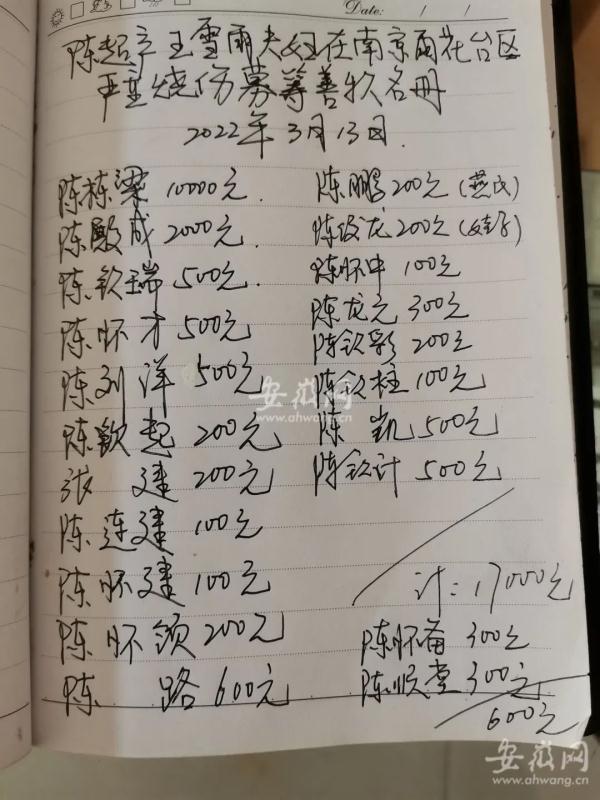 Date: / /
陈超 王雪雨夫妇在南京雨花台区
严重烧伤募筹善款名册
2022年3月13日.
陈栋梁 10000元
陈殿成 2000元.
陈钦瑞 500元.
陈怀才 500元
陈列洋 500元
陈钦起 200元
张 建 200元
陈连建 100元
陈怀建 100元
陈怀领 200元
陈 路 600元
陈鹏 200元 (燕氏)
陈俊龙 200元 (女子)
陈怀中 100元
陈龙元 300元
陈钦彩 200元
陈钦柱 100元
陈 凯 500元
陈钦计 500元
计: 17000元
陈怀备 300元
陈顺堂 300元
600元
安徽网
www.ahwang.cn
安徽网
www.ahwang.cn